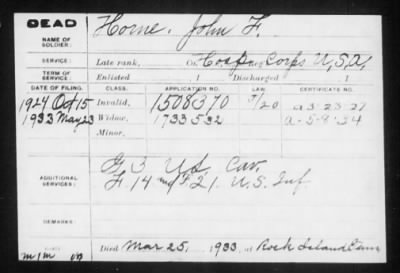 DEAD
NAME OF SOLDIER: Horne, John F.
SERVICE: Late rank, Co. Hosp Reg't Corps U.S.A.
TERM OF SERVICE: Enlisted 1 Discharged 1
DATE OF FILING. CLASS. APPLICATION NO. LAW. CERTIFICATE NO.
1924 Oct 15 Invalid, 1508370 a-3-23-27
1933 May 23 Widow, 1733532 a-5-8-34
Minor,
ADDITIONAL SERVICES: G 3 U.S. Cav.
F. 14 and F. 21. U.S. Inf
m/m
Died Mar 25, 1933, at Rock Island